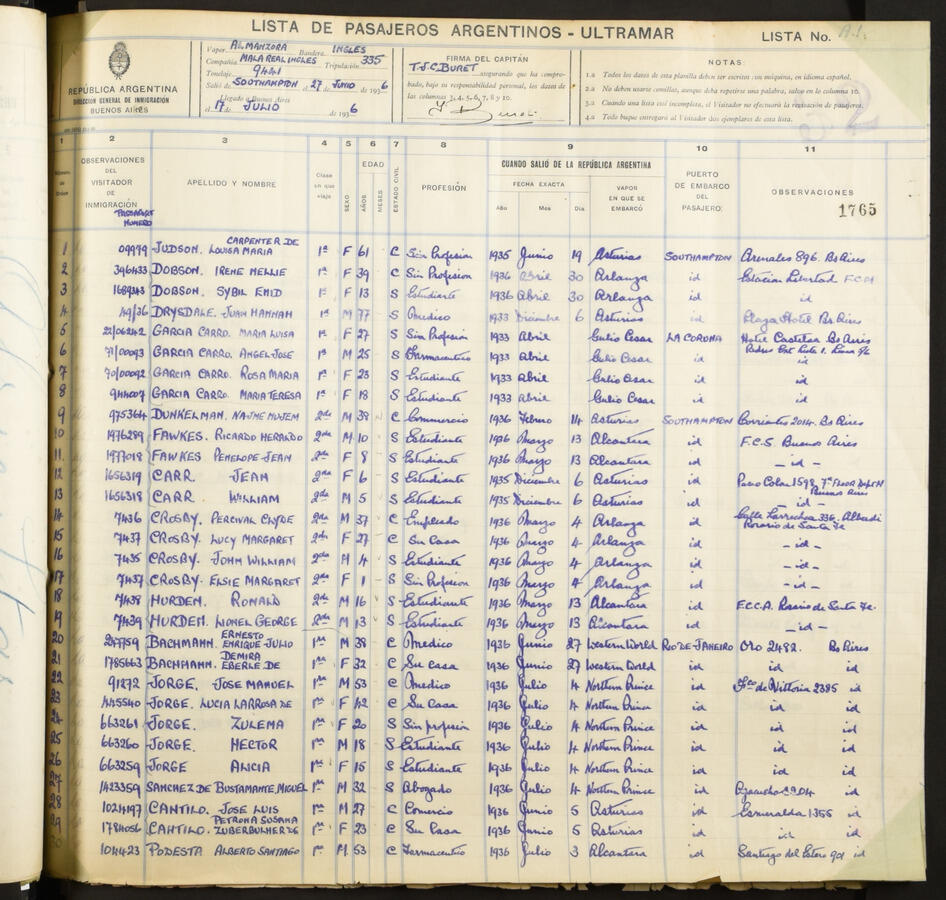 LISTA DE PASAJEROS ARGENTINOS - ULTRAMAR LISTA No. A.1.
REPÚBLICA ARGENTINA
DIRECCION GENERAL DE INMIGRACIÓN
BUENOS AIRES
Vapor ALMANZORA Bandera INGLES
Compañía MALA REAL INGLES Tripulación 335
Tonelaje 9441
Salió de SOUTHAMPTON el 27 JUNIO de 1936
Llegado a Buenos Aires
el 17 JULIO de 1936
FIRMA DEL CAPITÁN
T.J.C. BURET asegurando que ha comprobado, bajo su responsabilidad personal, los datos de
las columnas 3, 4, 5, 6, 7, 8 y 10.
NOTAS:
1.a Todos los datos de esta planilla deben ser escritos con máquina, en idioma español.
2.a No deben usarse comillas, aunque deba repetirse una palabra, salvo en la columna 10.
3.a Cuando una lista esté incompleta, el Visitador no efectuará la revisación de pasajeros.
4.a Todo buque entregará al Visitador dos ejemplares de esta lista.
1 2 3 4 5 6 7 8 9 10 11
OBSERVACIONES DEL VISITADOR DE INMIGRACIÓN
PASSAPORT NUMERO
APELLIDO Y NOMBRE
Clase en que viaja
SEXO
EDAD
AÑOS
MESES
ESTADO CIVIL
PROFESIÓN
CUANDO SALIÓ DE LA REPÚBLICA ARGENTINA
FECHA EXACTA
Año Mes Día
VAPOR EN QUE SE EMBARCÓ
PUERTO DE EMBARCO DEL PASAJERO:
OBSERVACIONES
1765
1 09979 JUDSON. CARPENTER DE LOUISA MARIA 1a F 61 C Sin Profesion 1935 Junio 19 Asturias SOUTHAMPTON Arenales 896. Bs Aires
2 396433 DOBSON. IRENE MELLIE 1a F 39 C Sin Profesion 1936 Abril 30 Arlanza id Estacion Libertad F.C.M
3 1689343 DOBSON. SYBIL ENID 1a F 13 S Estudiante 1936 Abril 30 Arlanza id id
4 49/36 DRYSDALE. JUAN HANNAH 1a M 77 S Medico 1933 Diciembre 6 Asturias id Plaza Hotel Bs Aires
5 22/06242 GARCIA CARRO. MARIA LUISA 1a F 27 S Sin Profesion 1933 Abril Gulio Cesar LA CORUNA Hotel Castelar Bs Aires
6 71/00093 GARCIA CARRO. ANGEL JOSE 1a M 25 S Farmaceutico 1933 Abril Gulio Cesar id
7 70/00092 GARCIA CARRO. ROSA MARIA 1a F 23 S Estudiante 1933 Abril Gulio Cesar id id
8 944007 GARCIA CARRO. MARIA TERESA 1a F 18 S Estudiante 1933 Abril Gulio Cesar id id
9 975364 DUNKELMAN. NAJME MUJEM 2da M 38 C Commercio 1936 Febro 14 Asturias SOUTHAMPTON Corrientes 2014. Bs Aires
10 1976289 FAWKES. RICARDO HERALDO 2da M 10 S Estudiante 1936 Marzo 13 Alcantara id F.C.S Buenos Aires
11 1977018 FAWKES PENELOPE JEAN 2da F 8 S Estudiante 1936 Marzo 13 Alcantara id - id -
12 1656319 CARR. JEAN 2da F 6 S Estudiante 1935 Diciembre 6 Asturias id Paseo Colon 1598 7º Buenos Aires
13 1656318 CARR. WILLIAM 2da M 5 S Estudiante 1935 Diciembre 6 Asturias id - id -
14 7436 CROSBY. PERCIVAL CLYDE 2da M 37 C Empleado 1936 Marzo 4 Arlanza id Calle Larrechea 336. Alberdi Rosario de Santa Fe
15 7437 CROSBY. LUCY MARGARET 2da F 27 C Su Casa 1936 Marzo 4 Arlanza id - id -
16 7435 CROSBY. JOHN WILLIAM 2da M 4 S Estudiante 1936 Marzo 4 Arlanza id - id -
17 7437 CROSBY. ELSIE MARGARET 2da F 1 S Sin Profesion 1936 Marzo 4 Arlanza id - id -
18 7438 HURDEN. RONALD 2da M 16 S Estudiante 1936 Marzo 13 Alcantara id F.C.C.A. Rosario de Santa Fe.
19 7439 HURDEN. LIONEL GEORGE 2da M 13 S Estudiante 1936 Marzo 13 Alcantara id - id -
20 217759 BACHMANN. ERNESTO ENRIQUE JULIO 1a M 38 C Medico 1936 Junio 27 Western World RIO DE JANEIRO Oro 2482. Bs Aires
21 1785663 BACHMANN. DEMIRA EBERLE DE 1a F 32 C Su Casa 1936 Junio 27 Western World id id id
22 91272 JORGE. JOSE MANUEL 1a M 53 C Medico 1936 Julio 4 Northern Prince id Fco de Vittoria 2385 id
23 445540 JORGE. LUCIA LARROSA DE 1a F 42 C Su Casa 1936 Julio 4 Northern Prince id id id
24 663261 JORGE. ZULEMA 1a F 20 S Sin profesion 1936 Julio 4 Northern Prince id id id
25 663260 JORGE. HECTOR 1a M 18 S Estudiante 1936 Julio 4 Northern Prince id id id
26 663259 JORGE ALICIA 1a F 15 S Estudiante 1936 Julio 4 Northern Prince id id id
27 1423359 SANCHEZ DE BUSTAMANTE, MIGUEL 1a M 32 S Abogado 1936 Julio 4 Northern Prince id Ayacucho 1204 id
28 1024197 CANTILO. JOSE LUIS 1a M 27 C Comercio 1936 Junio 5 Asturias id Esmeralda 1355 id
29 1784056 CANTILO. PETRONA SUSANA ZUBERBUHLER DE F 23 C Su Casa 1936 Junio 5 Asturias id id id
30 104423 PODESTA ALBERTO SANTIAGO 1a M 53 C Farmaceutico 1936 Julio 3 Alcantara id Santiago del Estero 901 id